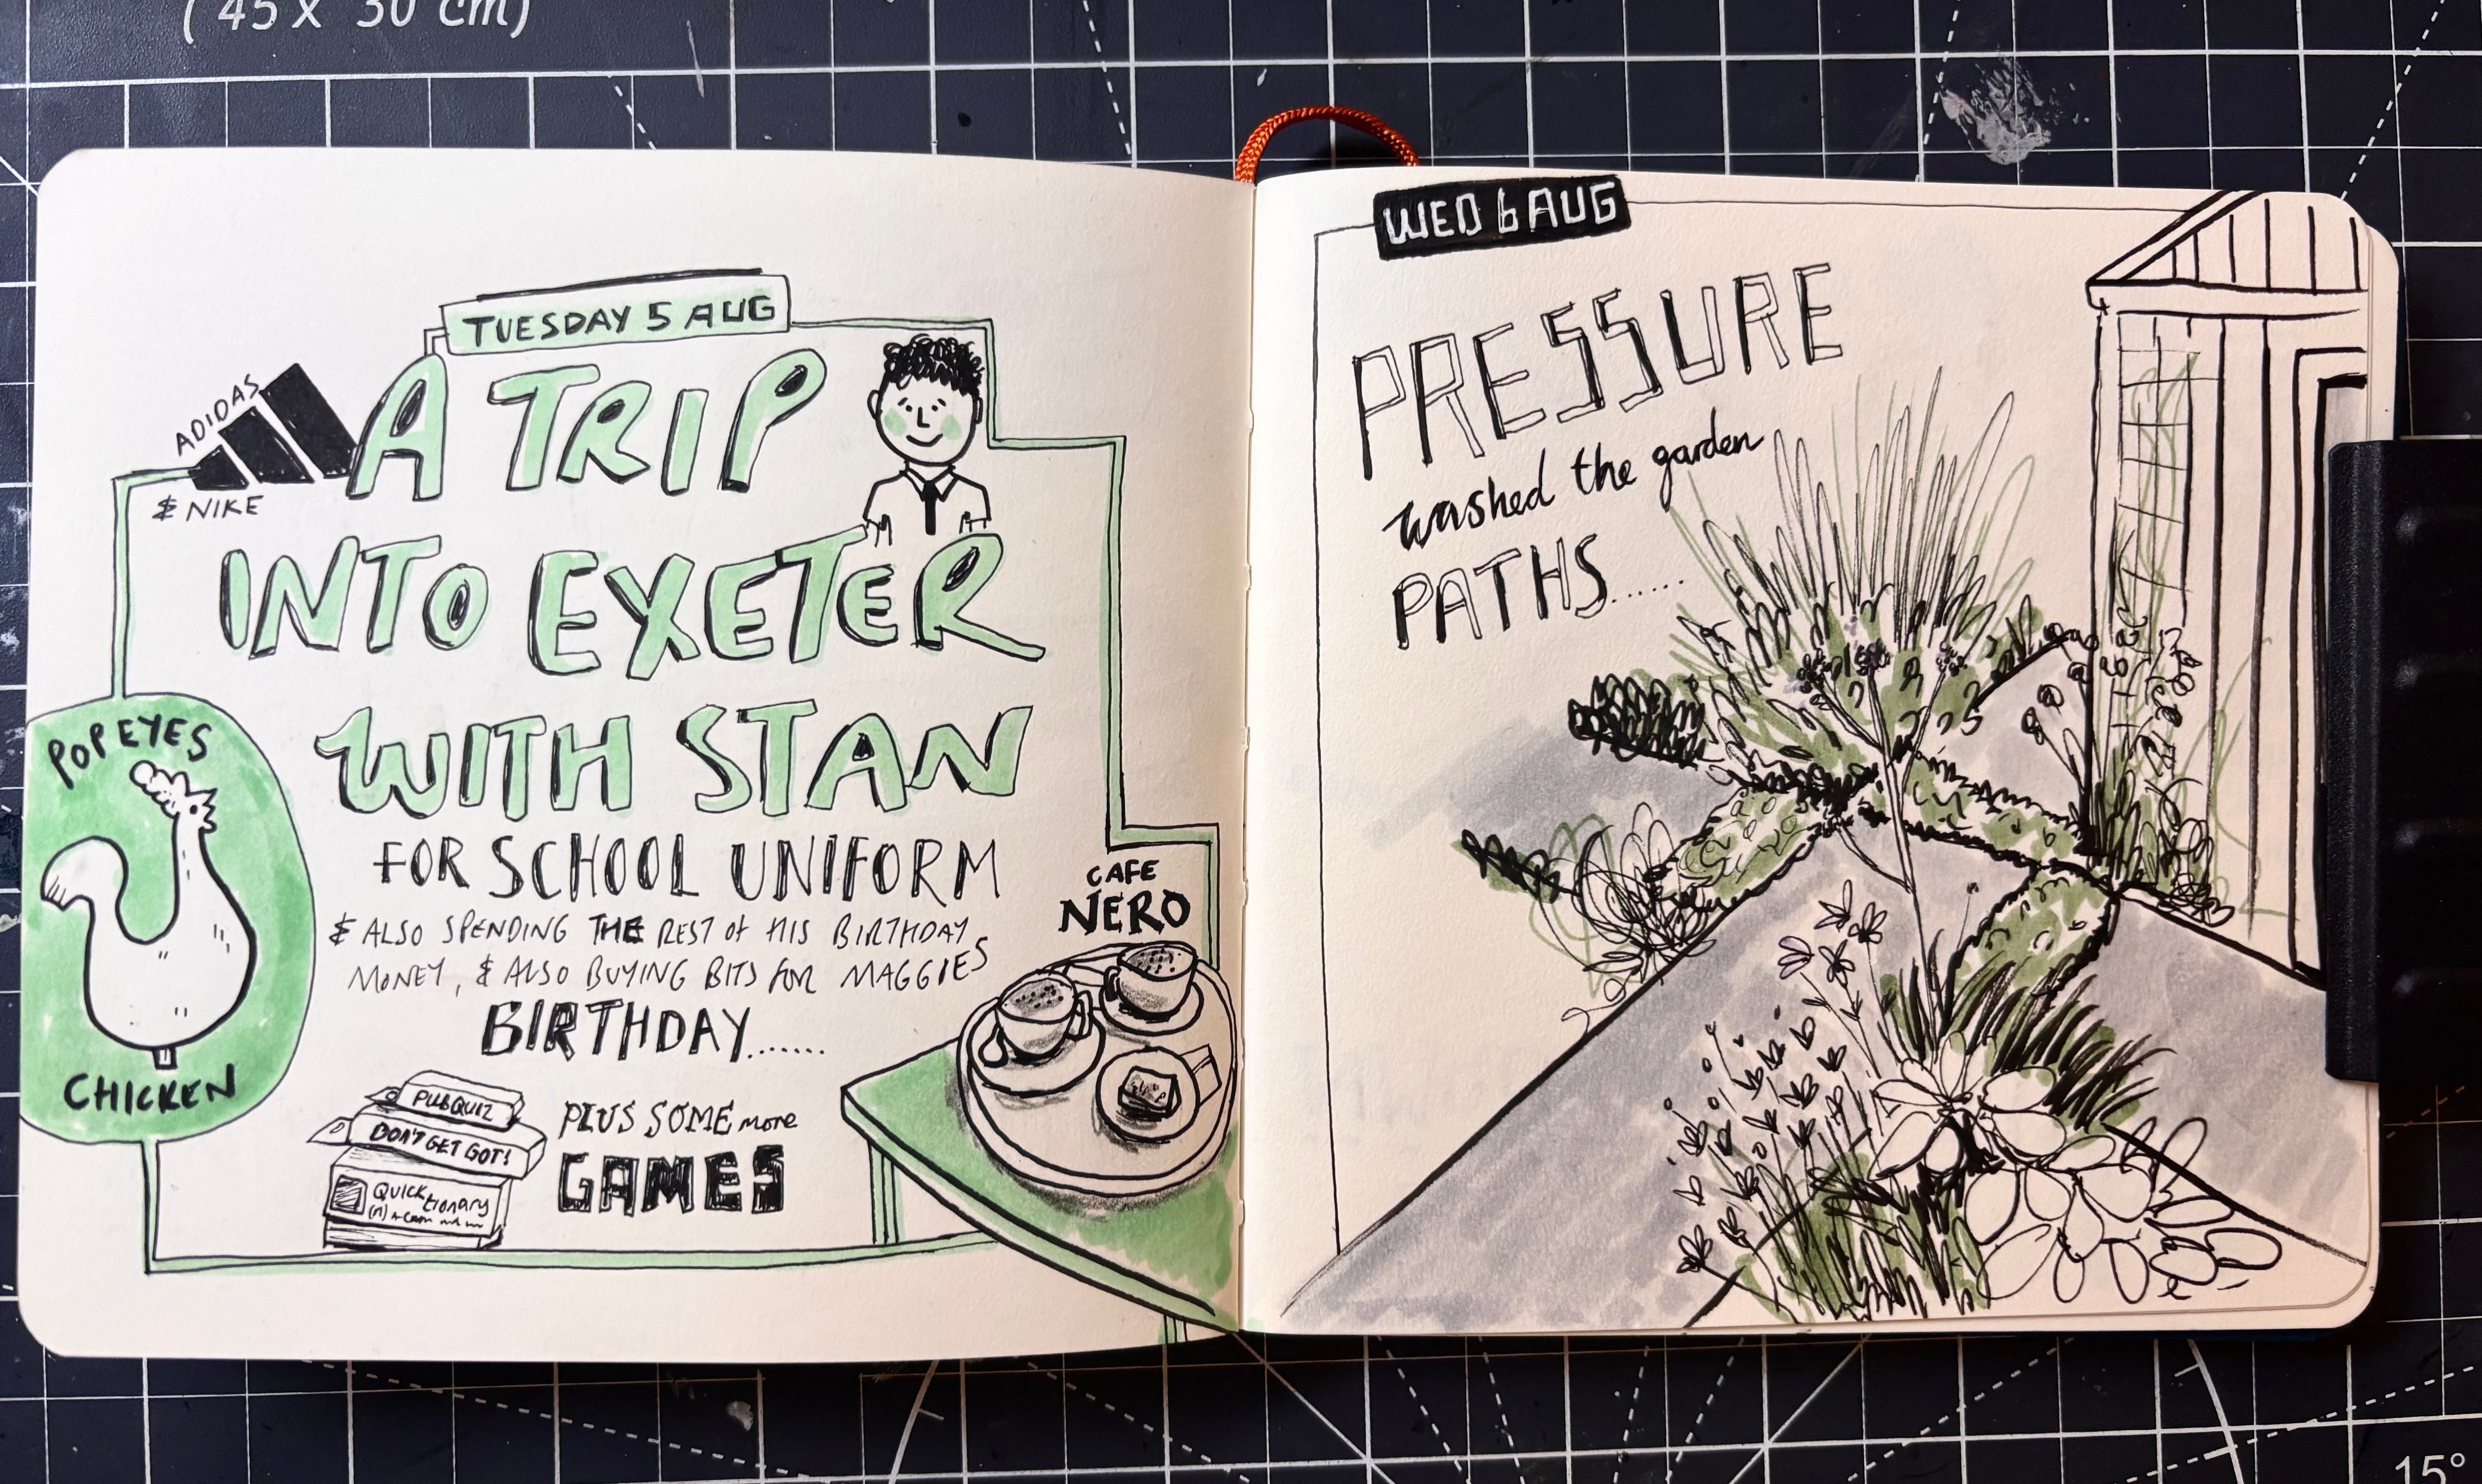 (45 x 30 cm)
TUESDAY 5 AUG
ADIDAS
& NIKE
A TRIP
INTO EXETER
WITH STAN
FOR SCHOOL UNIFORM
& ALSO SPENDING THE REST Of HIS BIRTHDAY
MONEY, & ALSO BUYING BITS FOR MAGGIES
BIRTHDAY.......
POPEYES
CHICKEN
CAFE
NERO
PUB QUIZ
DON'T GET GOT!
QUICK
tionary
PLUS SOME more
GAMES
WED 6 AUG
PRESSURE
washed the garden
PATHS.....
15°